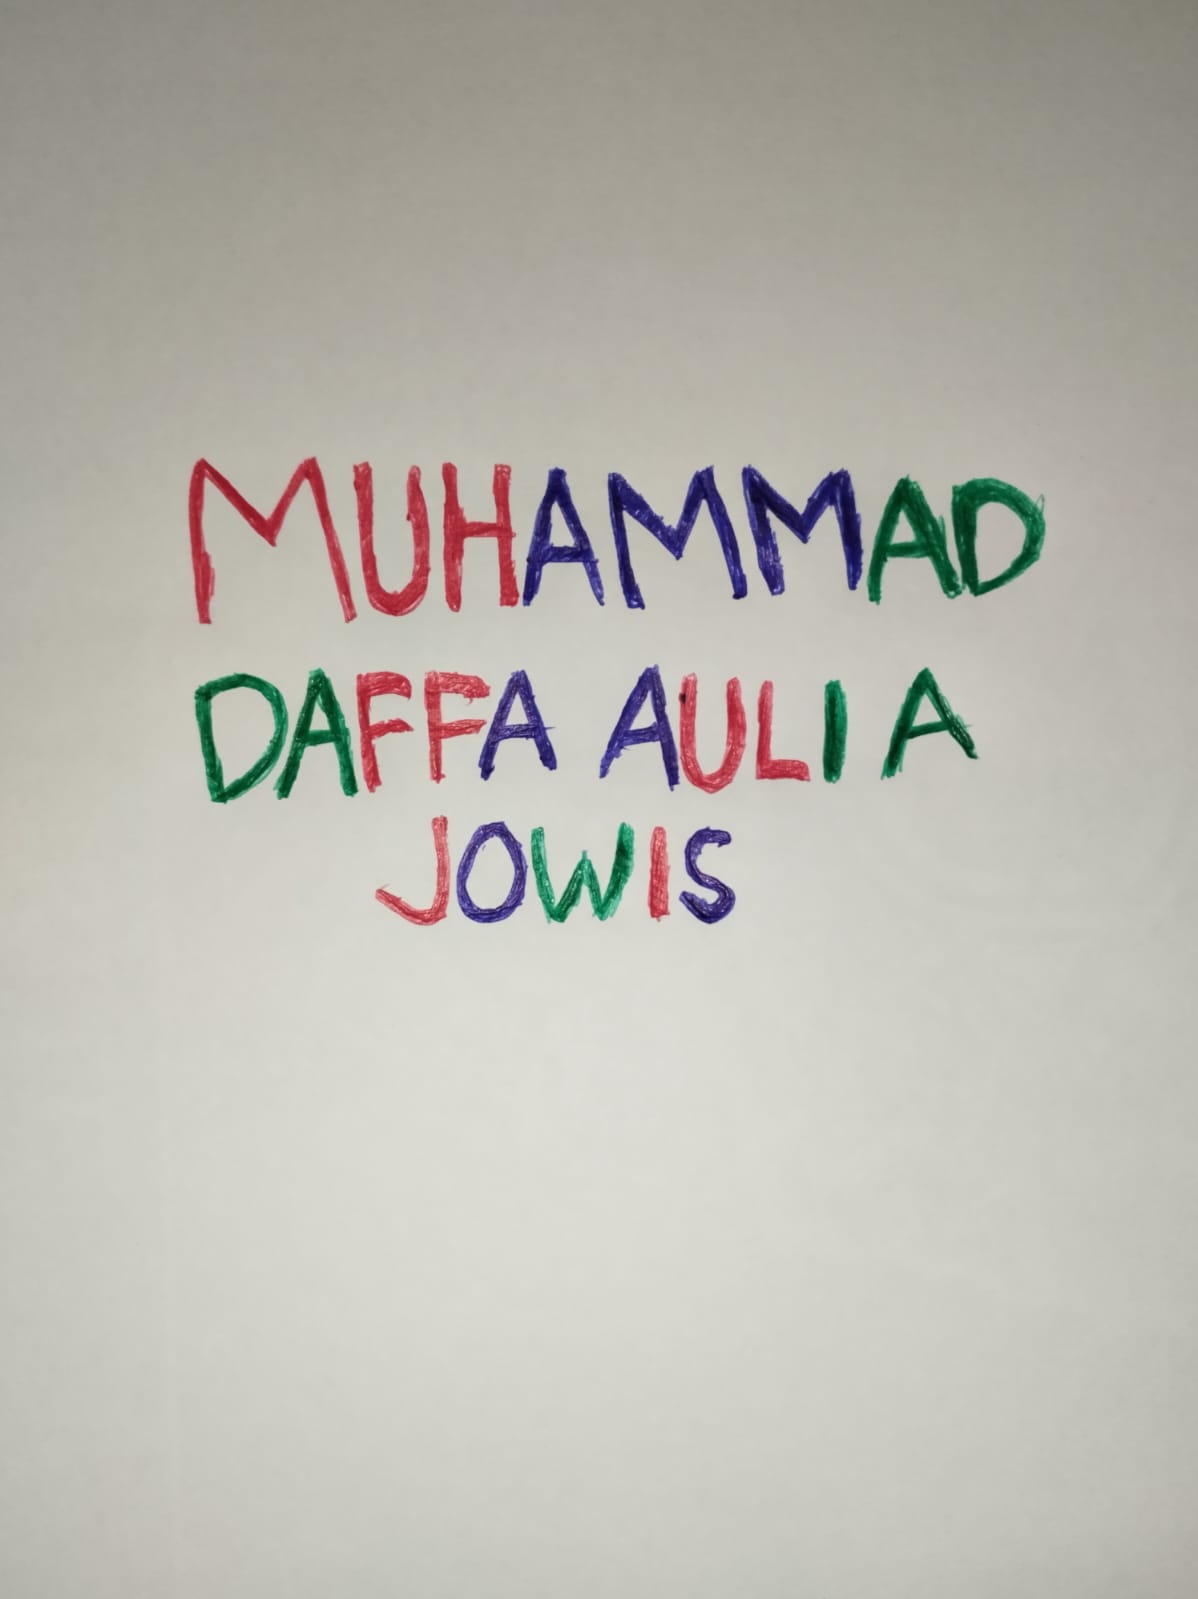 MUHAMMAD
DAFFA AULIA
JOWIS